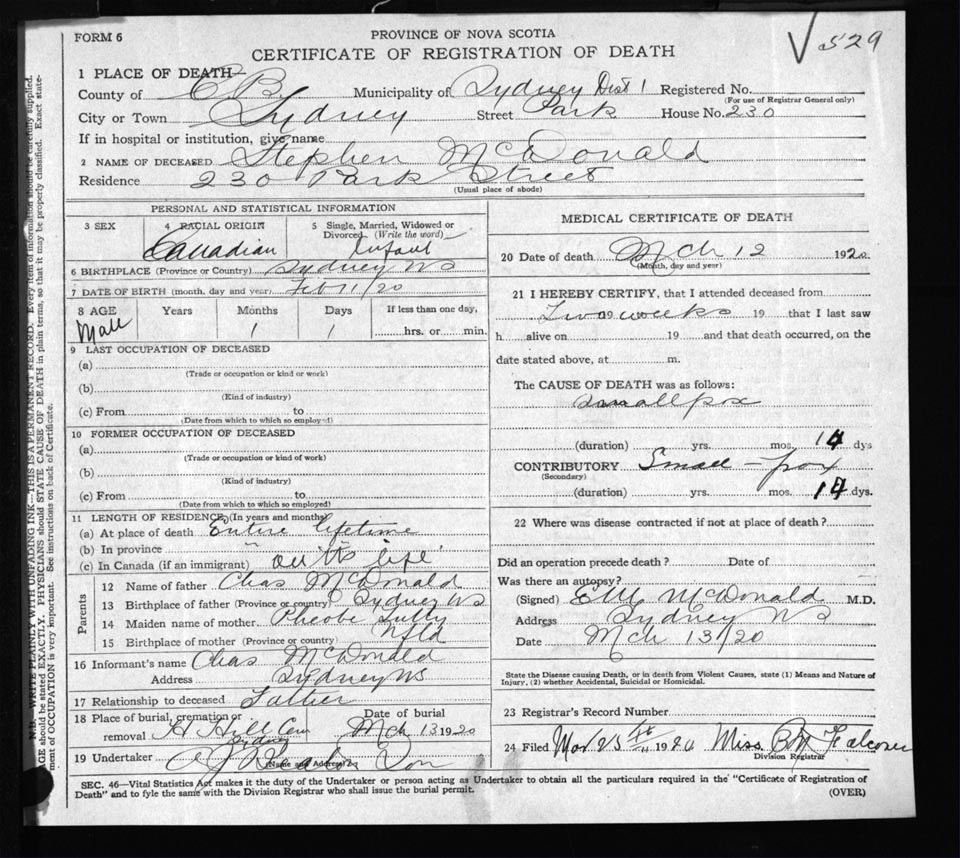 FORM 6
PROVINCE OF NOVA SCOTIA
CERTIFICATE OF REGISTRATION OF DEATH
√ 529
1 PLACE OF DEATH—
County of C B. Municipality of Sydney Dist 1 Registered No.
(For use of Registrar General only)
City or Town Sydney Street Park House No. 230
If in hospital or institution, give name
2 NAME OF DECEASED Stephen McDonald
Residence 230 Park Street
(Usual place of abode)
PERSONAL AND STATISTICAL INFORMATION
3 SEX
4 RACIAL ORIGIN
Canadian
5 Single, Married, Widowed or Divorced (Write the word)
Infant
6 BIRTHPLACE (Province or Country) Sydney NS
7 DATE OF BIRTH (month, day and year) Feb 11/20
8 AGE Years Months Days If less than one day,
Male 1 1 hrs. or min.
9 LAST OCCUPATION OF DECEASED
(a)
(Trade or occupation or kind or work)
(b)
(Kind of industry)
(c) From to
(Date from which to which so employed)
10 FORMER OCCUPATION OF DECEASED
(a)
(Trade or occupation or kind of work)
(b)
(Kind of industry)
(c) From to
(Date from which to which so employed)
11 LENGTH OF RESIDENCE, (In years and months)
(a) At place of death Entire lifetime
(b) In province " "
(c) In Canada (if an immigrant) life
Parents
12 Name of father Chas McDonald
13 Birthplace of father (Province or country) Sydney NS
14 Maiden name of mother Pheobe
15 Birthplace of mother (Province or country) Nfld
16 Informant's name Chas McDonald
Address Sydney NS
17 Relationship to deceased Father
18 Place of burial, cremation or removal H Hill Cem
Date of burial Mch 13 1920
19 Undertaker & Son
(Name and Address)
MEDICAL CERTIFICATE OF DEATH
20 Date of death Mch 12 1920
(Month, day and year)
21 I HEREBY CERTIFY, that I attended deceased from
Two weeks 19 that I last saw
h alive on 19 and that death occurred, on the
date stated above, at m.
The CAUSE OF DEATH was as follows:
Smallpox
(duration) yrs. mos. 14 dys
CONTRIBUTORY Small-pox
(Secondary)
(duration) yrs. mos. 14 dys.
22 Where was disease contracted if not at place of death?
Did an operation precede death? Date of
Was there an autopsy?
(Signed) E M McDonald M.D.
Address Sydney NS
Date Mch 13/20
State the Disease causing Death, or in death from Violent Causes, state (1) Means and Nature of
Injury, (2) whether Accidental, Suicidal or Homicidal.
23 Registrar's Record Number
24 Filed Mar 25 1920 Miss Falconer
Division Registrar
SEC. 46—Vital Statistics Act makes it the duty of the Undertaker or person acting as Undertaker to obtain all the particulars required in the "Certificate of Registration of
Death" and to fyle the same with the Division Registrar who shall issue the burial permit.
(OVER)
N.B. WRITE PLAINLY WITH UNFADING INK—THIS IS A PERMANENT RECORD. Every item of information should be carefully supplied.
AGE should be stated EXACTLY. PHYSICIANS should STATE CAUSE OF DEATH in plain terms, so that it may be properly classified. Exact state-
ment of OCCUPATION is very important. See instructions on back of Certificate.